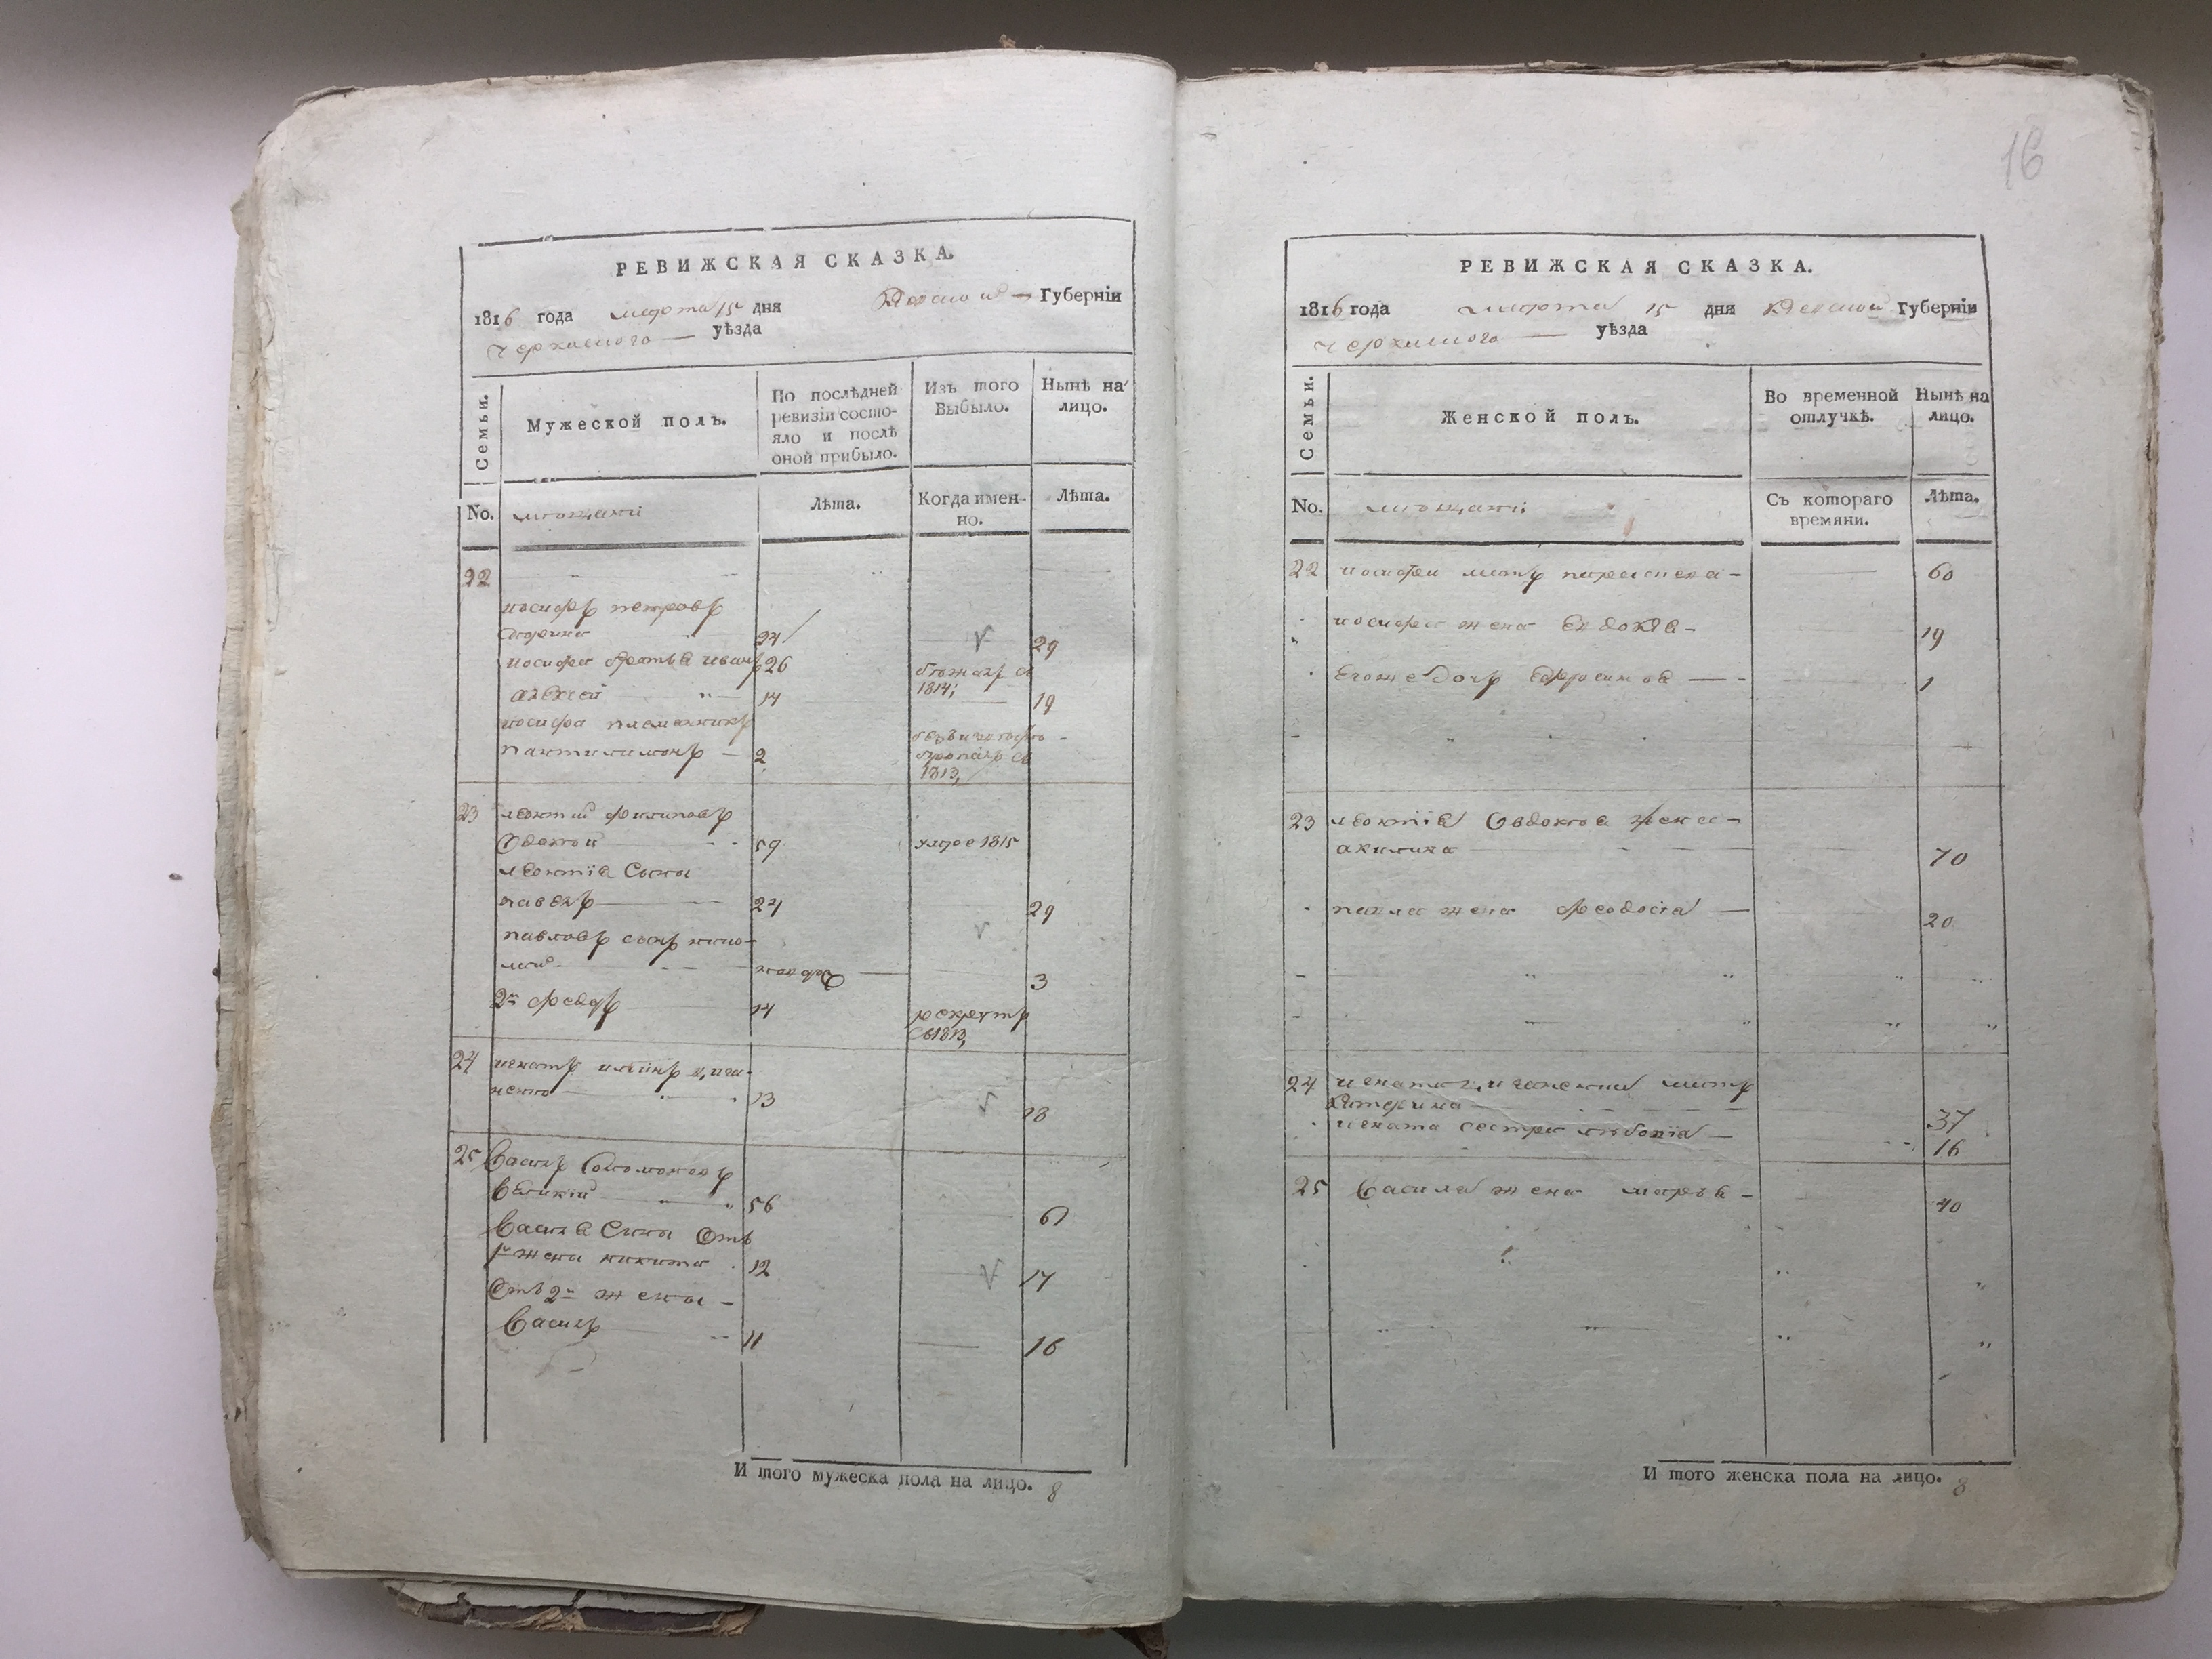 РЕВИЖСКАЯ СКАЗКА.
1816 года марта 15 дня Киевской Губерніи
Черкаского уѣзда
Семьи.
Мужеской полъ.
По послѣдней ревизіи состо-
яло и послѣ оной прибыло.
Изъ того Выбыло.
Нынѣ на лицо.
No. мещани
Лѣта.
Когда имен-
но.
Лѣта.
22
иосифъ петровъ
24 29
иосифа братья иванъ 26 бежалъ въ
алексей 14 1814; 19
иосифа племянникъ
пантилимонъ 2 безъизвестно
пропалъ въ
1813,
23 леонтий филиповъ
59 умре 1815
леонтія сыны
павелъ 24 29
павловъ сынъ
3
2й федоръ 14 рекрутъ
въ 1813,
24 игнатъ ильинъ цига-
ненко 13 18
25 Василь Соломоновъ
Великий 56 61
Василя Сыны Отъ
1й жены никита 12 17
Отъ 2й жены
Василь 11 16
И того мужеска пола на лицо. 8
16
РЕВИЖСКАЯ СКАЗКА.
1816 года марта 15 дня Киевской Губерніи
Черкаского уѣзда
Семьи.
Женской полъ.
Во временной отлучкѣ.
Нынѣ на лицо.
No. мещани:
Съ котораго времяни.
Лѣта.
22 иосифа матъ параскева 60
иосифа жена Евдокѣа 19
Егоже дочь Ефросинѣа 1
23 леонтія жена
акилина 70
павла жена феодосіа 20
24 игната циганенка матъ
Катерина 37
игната сестра 16
25 Василя жена марѣа 40
И того женска пола на лицо. 8